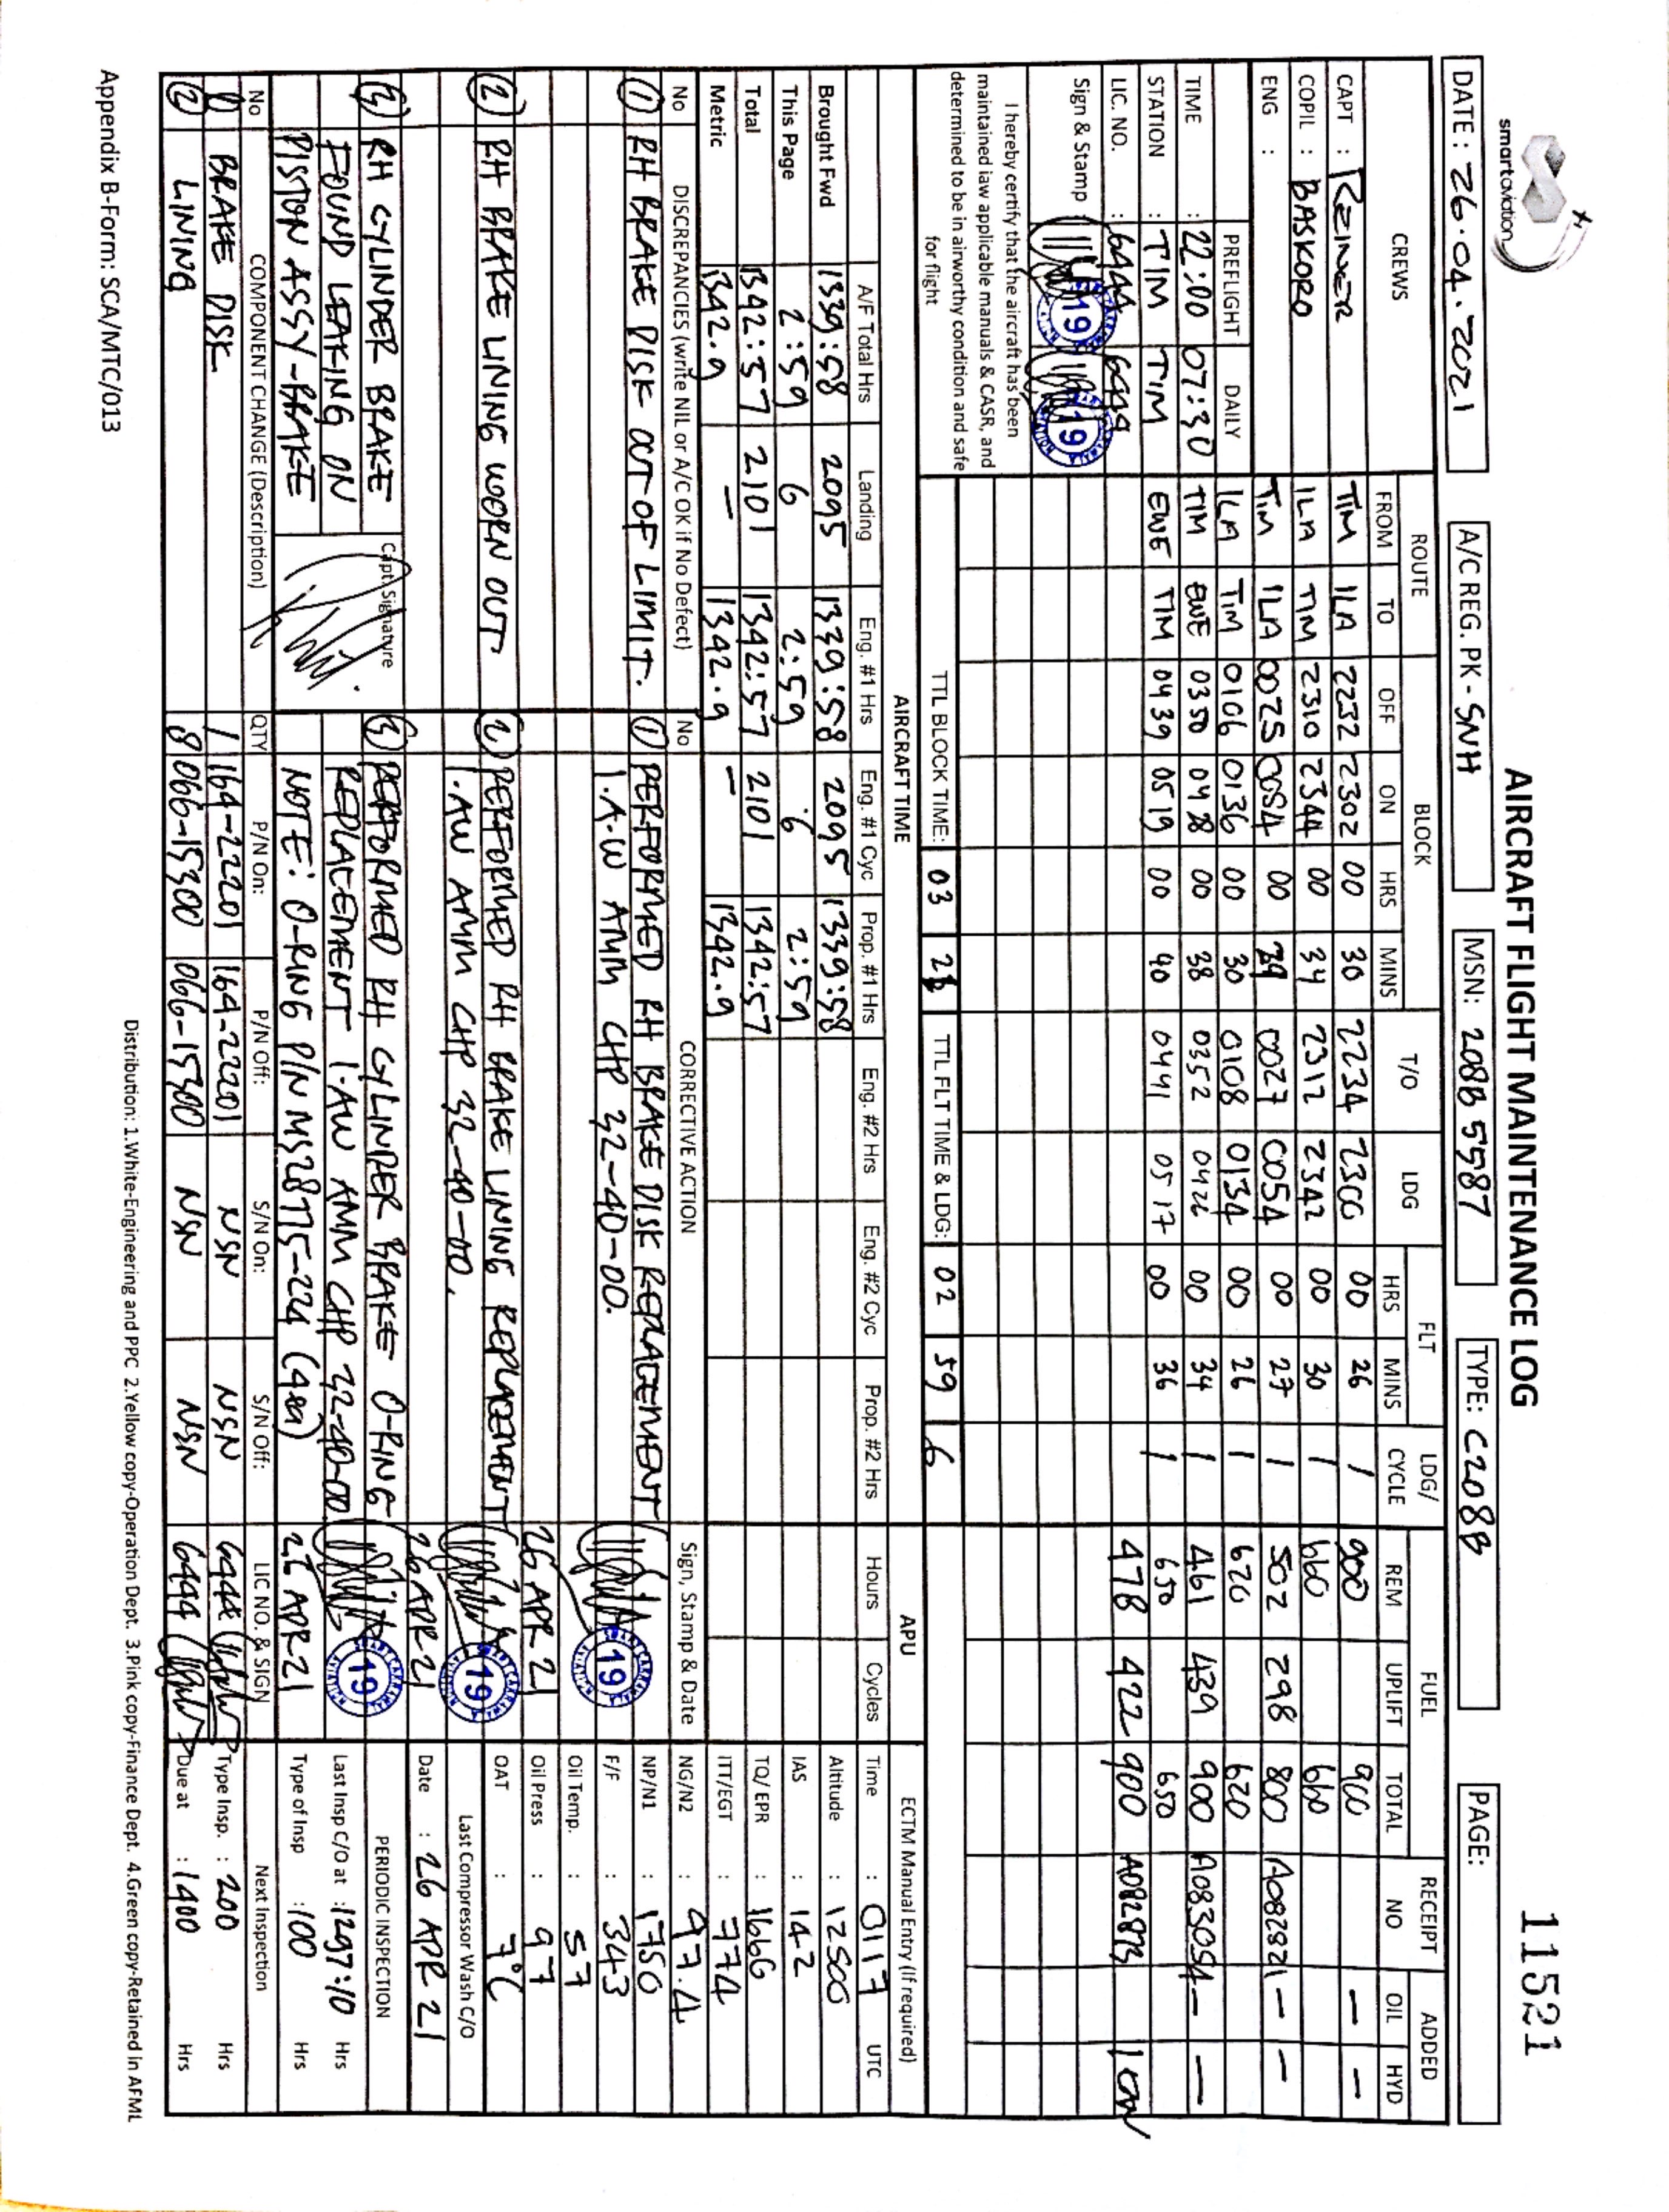 smartaviation
AIRCRAFT FLIGHT MAINTENANCE LOG
11521
DATE : 26.04.2021 A/C REG. PK - SNH MSN: 208B 5587 TYPE: C208B PAGE:
CREWS ROUTE BLOCK T/O LDG FLT LDG/ CYCLE FUEL RECEIPT NO ADDED
FROM TO OFF ON HRS MINS HRS MINS REM UPLIFT TOTAL OIL HYD
CAPT : REINER TIM ILA 2232 2302 00 30 2234 2300 00 26 1 900 900 — —
COPIL : BASKORO ILA TIM 2310 2344 00 34 2312 2342 00 30 1 660 660
ENG : TIM ILA 0025 0054 00 29 0027 0054 00 27 1 502 298 800 A082821 — —
PREFLIGHT DAILY ILA TIM 0106 0136 00 30 0108 0134 00 26 1 620 620
TIME : 22:00 07:30 TIM EWE 0350 0428 00 38 0352 0426 00 34 1 461 439 900 A083054 — —
STATION : TIM TIM EWE TIM 0439 0519 00 40 0441 0517 00 36 1 650 650
LIC. NO. : 6444 6444 478 422 900 A082873
Sign & Stamp : 19 19
I hereby certify that the aircraft has been
maintained iaw applicable manuals & CASR, and
determined to be in airworthy condition and safe
for flight
TTL BLOCK TIME: 03 TTL FLT TIME & LDG: 02 59 6
AIRCRAFT TIME APU ECTM Manual Entry (If required)
A/F Total Hrs Landing Eng. #1 Hrs Eng. #1 Cyc Prop. #1 Hrs Eng. #2 Hrs Eng. #2 Cyc Prop. #2 Hrs Hours Cycles Time : 0117 UTC
Brought Fwd 1339:58 2095 1339:58 2095 1339:58 Altitude : 12500
This Page 2:59 6 2:59 6 2:59 IAS : 142
Total 1342:57 2101 1342:57 2101 1342:57 TQ/ EPR : 1666
Metric 1342.9 — 1342.9 — 1342.9 ITT/EGT : 774
No DISCREPANCIES (write NIL or A/C OK if No Defect) No CORRECTIVE ACTION Sign, Stamp & Date NG/N2 : 97.4
① RH BRAKE DISK OUT OF LIMIT. ① PERFORMED RH BRAKE DISK REPLACEMENT NP/N1 : 1750
I.A.W AMM CHP 32-40-00. 19 F/F : 343
Oil Temp. : 57
26 APR 21 Oil Press : 97
② RH BRAKE LINING WORN OUT ② PERFORMED RH BRAKE LINING REPLACEMENT OAT : 7°C
I.AW AMM CHP 32-40-00. 19 Last Compressor Wash C/O
26 APR 21 Date : 26 APR 21
③ RH CYLINDER BRAKE Capt. Signature ③ PERFORMED RH CYLINDER BRAKE O-RING PERIODIC INSPECTION
FOUND LEAKING ON REPLACEMENT I.AW AMM CHP 32-40-00 19 Last Insp C/O at : 1297:10 Hrs
PISTON ASSY-BRAKE NOTE: O-RING P/N MS28775-224 (4ea) 26 APR 21 Type of Insp : 100 Hrs
No COMPONENT CHANGE (Description) QTY P/N On: P/N Off: S/N On: S/N Off: LIC NO. & SIGN Next Inspection
① BRAKE DISK 1 164-22201 164-22201 NSN NSN 6444 Type Insp. : 200 Hrs
② LINING 8 066-15300 066-15300 NSN NSN 6444 Due at : 1400 Hrs
Appendix B-Form: SCA/MTC/013
Distribution: 1.White-Engineering and PPC 2.Yellow copy-Operation Dept. 3.Pink copy-Finance Dept. 4.Green copy-Retained in AFML